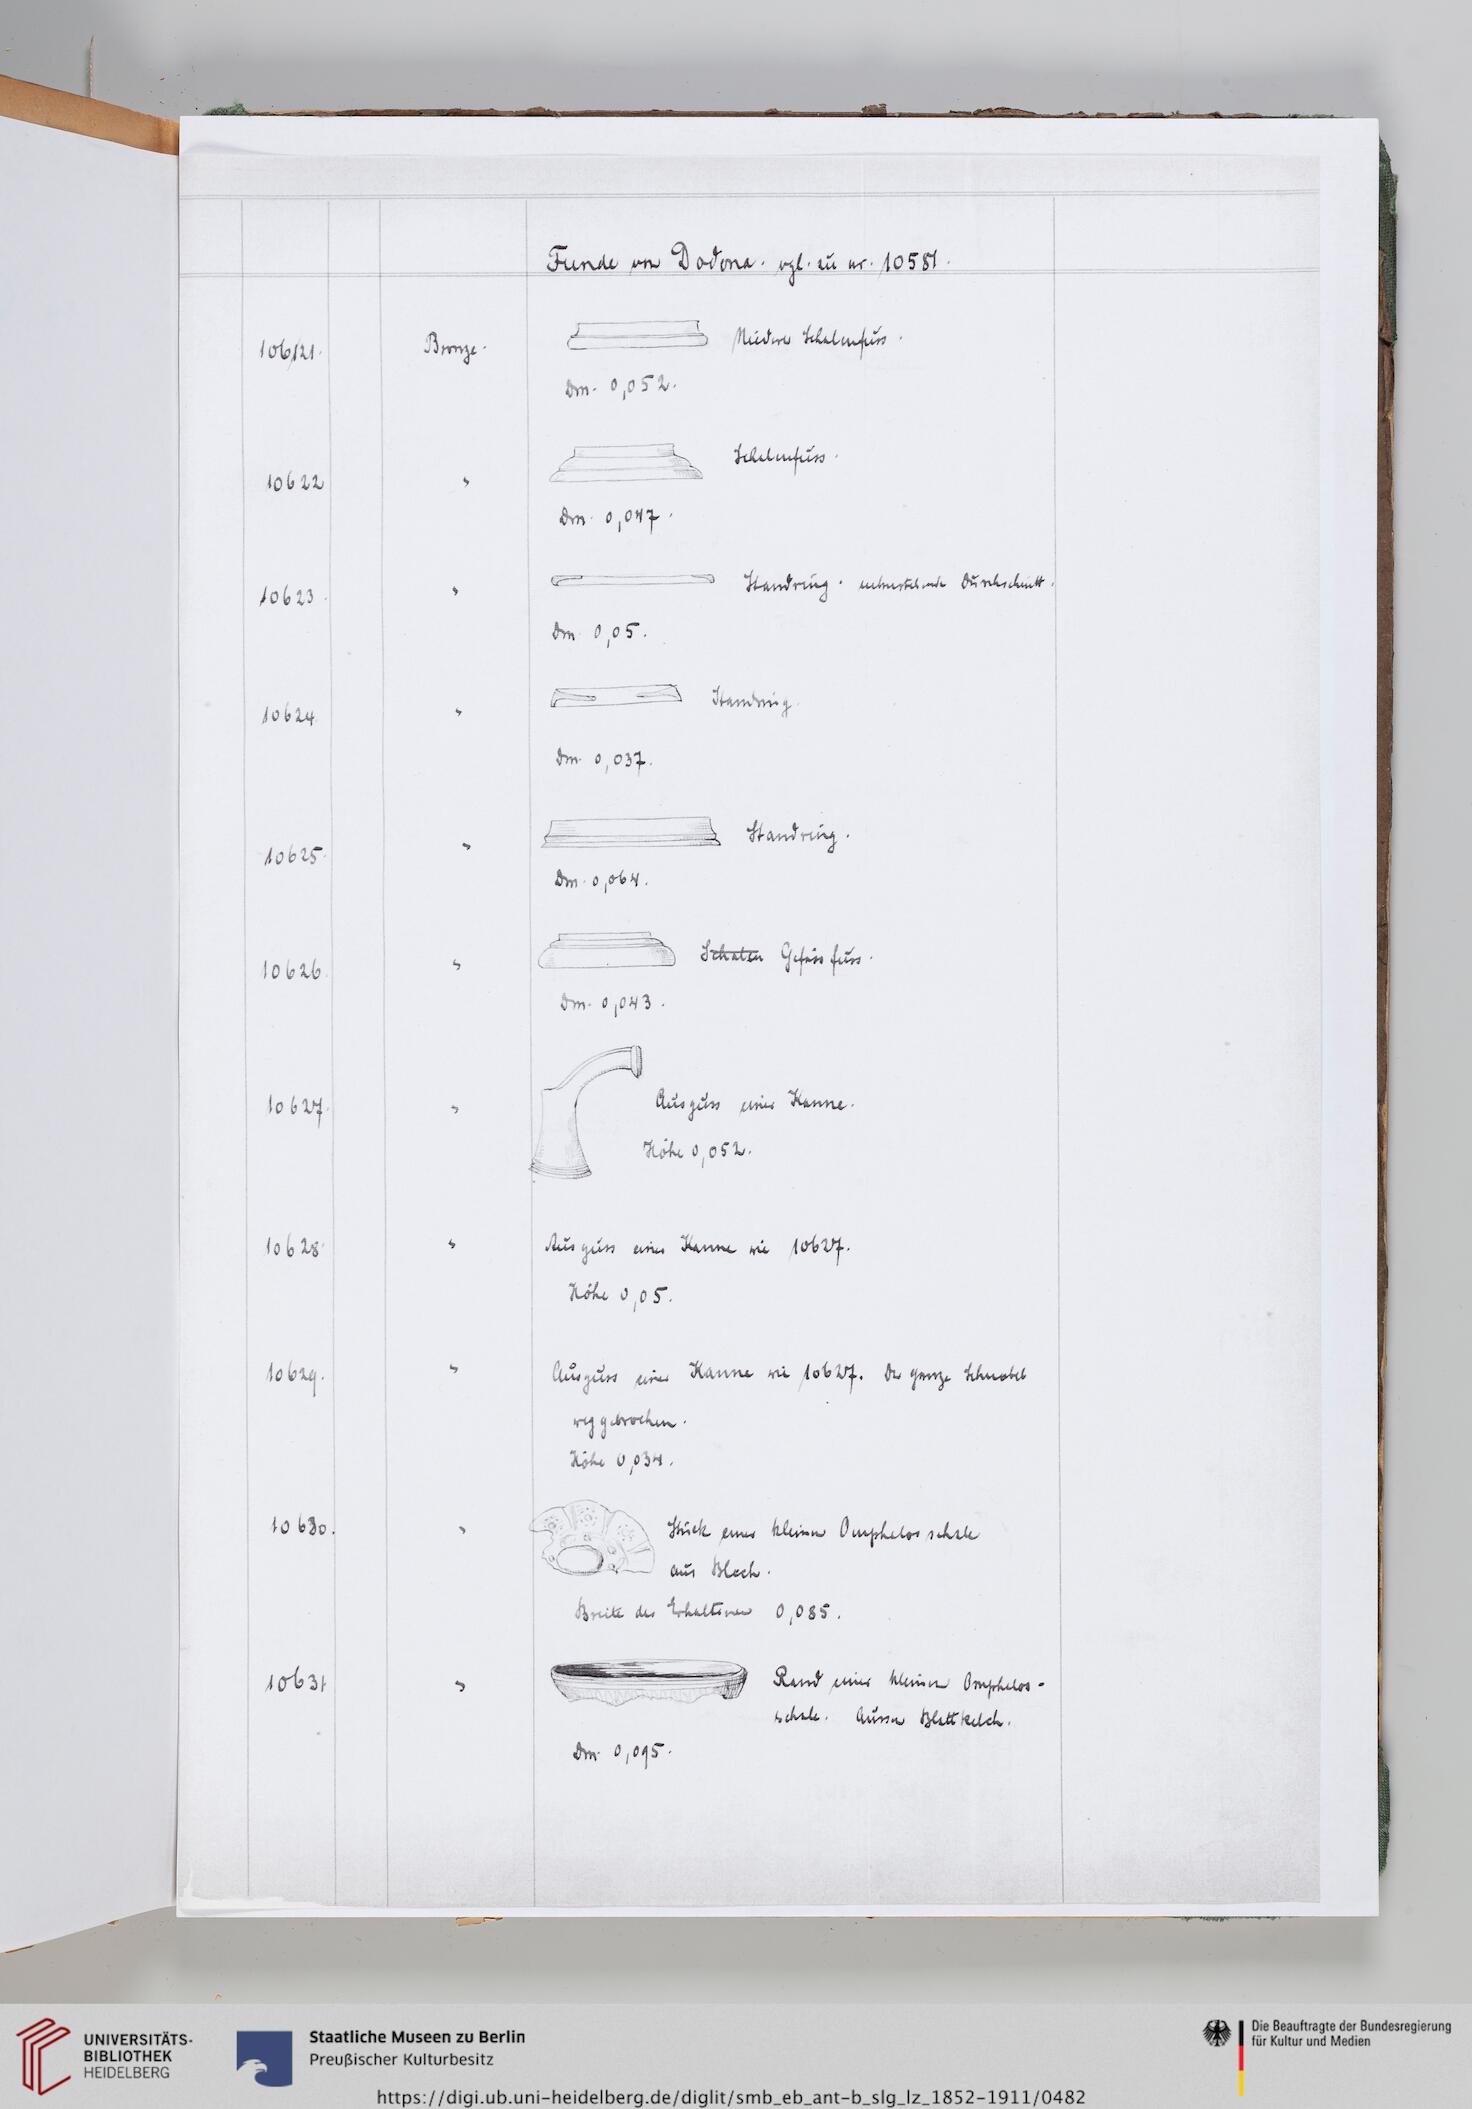 Funde von Dodona. vgl. zu nr. 10581.
10621. Bronze. Niederer Schalenfuss.
Dm. 0,052.
10622 " Schalenfuss.
Dm. 0,047.
10623. " Standring. nebenstehende Durchschnitt.
Dm. 0,05.
10624. " Standring.
Dm. 0,037.
10625. " Standring.
Dm. 0,064.
10626. " Schalen Gefäss fuss.
Dm. 0,043.
10627. " Ausguss einer Kanne.
Höhe 0,052.
10628. " Ausguss einer Kanne wie 10627.
Höhe 0,05.
10629. " Ausguss einer Kanne wie 10627. Der ganze Schnabel
weggebrochen.
Höhe 0,034.
10630. " Stück einer kleinen Omphalosschale
aus Blech.
Breite des Erhaltenen 0,085.
10631 " Rand einer kleinen Omphalos-
schale. Aussen Blattkelch.
Dm. 0,095.
UNIVERSITÄTS-
BIBLIOTHEK
HEIDELBERG
Staatliche Museen zu Berlin
Preußischer Kulturbesitz
Die Beauftragte der Bundesregierung
für Kultur und Medien
https://digi.ub.uni-heidelberg.de/diglit/smb_eb_ant-b_slg_lz_1852-1911/0482